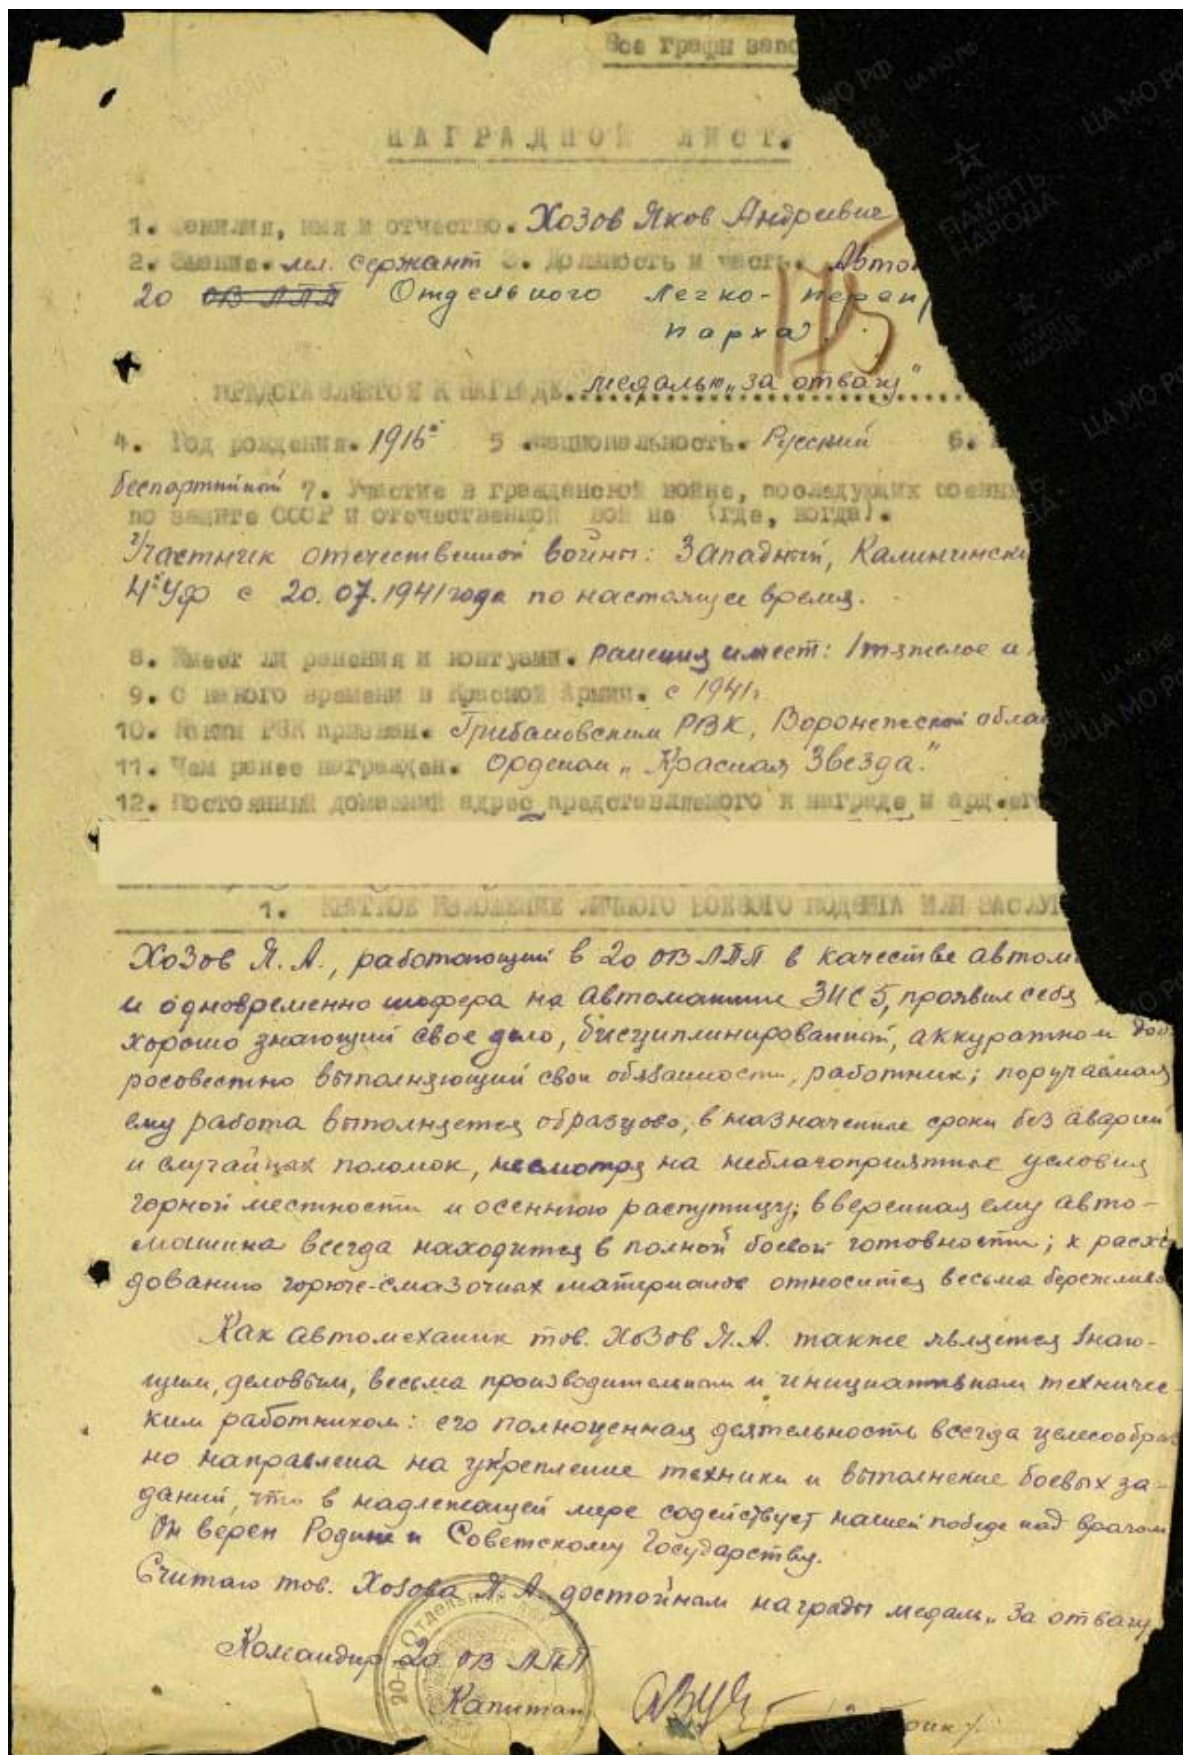 Все графы запо
НАГРАДНОЙ ЛИСТ.
1. Фамилия, имя и отчество. Хозов Яков Андреевич
2. Звание. мл. сержант 3. Должность и часть. Автом
20 ОВ ЛПП Отдельного Легко-перепр
парка.
ПРЕДСТАВЛЯЕТСЯ К НАГРАДЕ. медалью „За отвагу"
4. Год рождения. 1916 5. Национальность. Русский 6.
беспартийный 7. Участие в гражданской войне, последующих боевых
по защите СССР и отечественной войне (где, когда).
Участник отечественной войны: Западный, Калининский
4й Уф с 20.07.1941 года по настоящее время.
8. Имеет ли ранения и контузии. Ранения имеет: 1 тяжелое и
9. С какого времени в Красной Армии. с 1941г.
10. Каким РВК призван. Грибановским РВК, Воронежской обла
11. Чем ранее награжден. Орденом „Красная Звезда."
12. Постоянный домашний адрес представляемого к награде и адр. его
1. КРАТКОЕ ИЗЛОЖЕНИЕ ЛИЧНОГО БОЕВОГО ПОДВИГА ИЛИ ЗАСЛУГ
Хозов Я. А., работающий в 20 ОВ ЛПП в качестве автом
и одновременно шофера на автомашине ЗИС 5, проявил себя
хорошо знающий свое дело, дисциплинированный, аккуратном доб
росовестно выполняющий свои обязанности, работник; поручаемая
ему работа выполняется образцово, в назначенные сроки без аварий
и случайных поломок, несмотря на неблагоприятные условия
горной местности и осеннюю распутицу; вверенная ему авто-
машина всегда находится в полной боевой готовности; к расхо
дованию горюче-смазочных материалов относится весьма бережливо
Как автомеханик тов. Хозов Я.А. также является знаю-
щим, деловым, весьма производительным и инициативным техничес-
ким работником: его полноценная деятельность всегда целесообраз
но направлена на укрепление техники и выполнение боевых за-
даний, что в надлежащей мере содействует нашей победе над врагом
Он верен Родине и Советскому Государству.
Считаю тов. Хозова Я. А. достойным награды медаль „За отвагу
Командир 20 ОВ ЛПП
Капитан